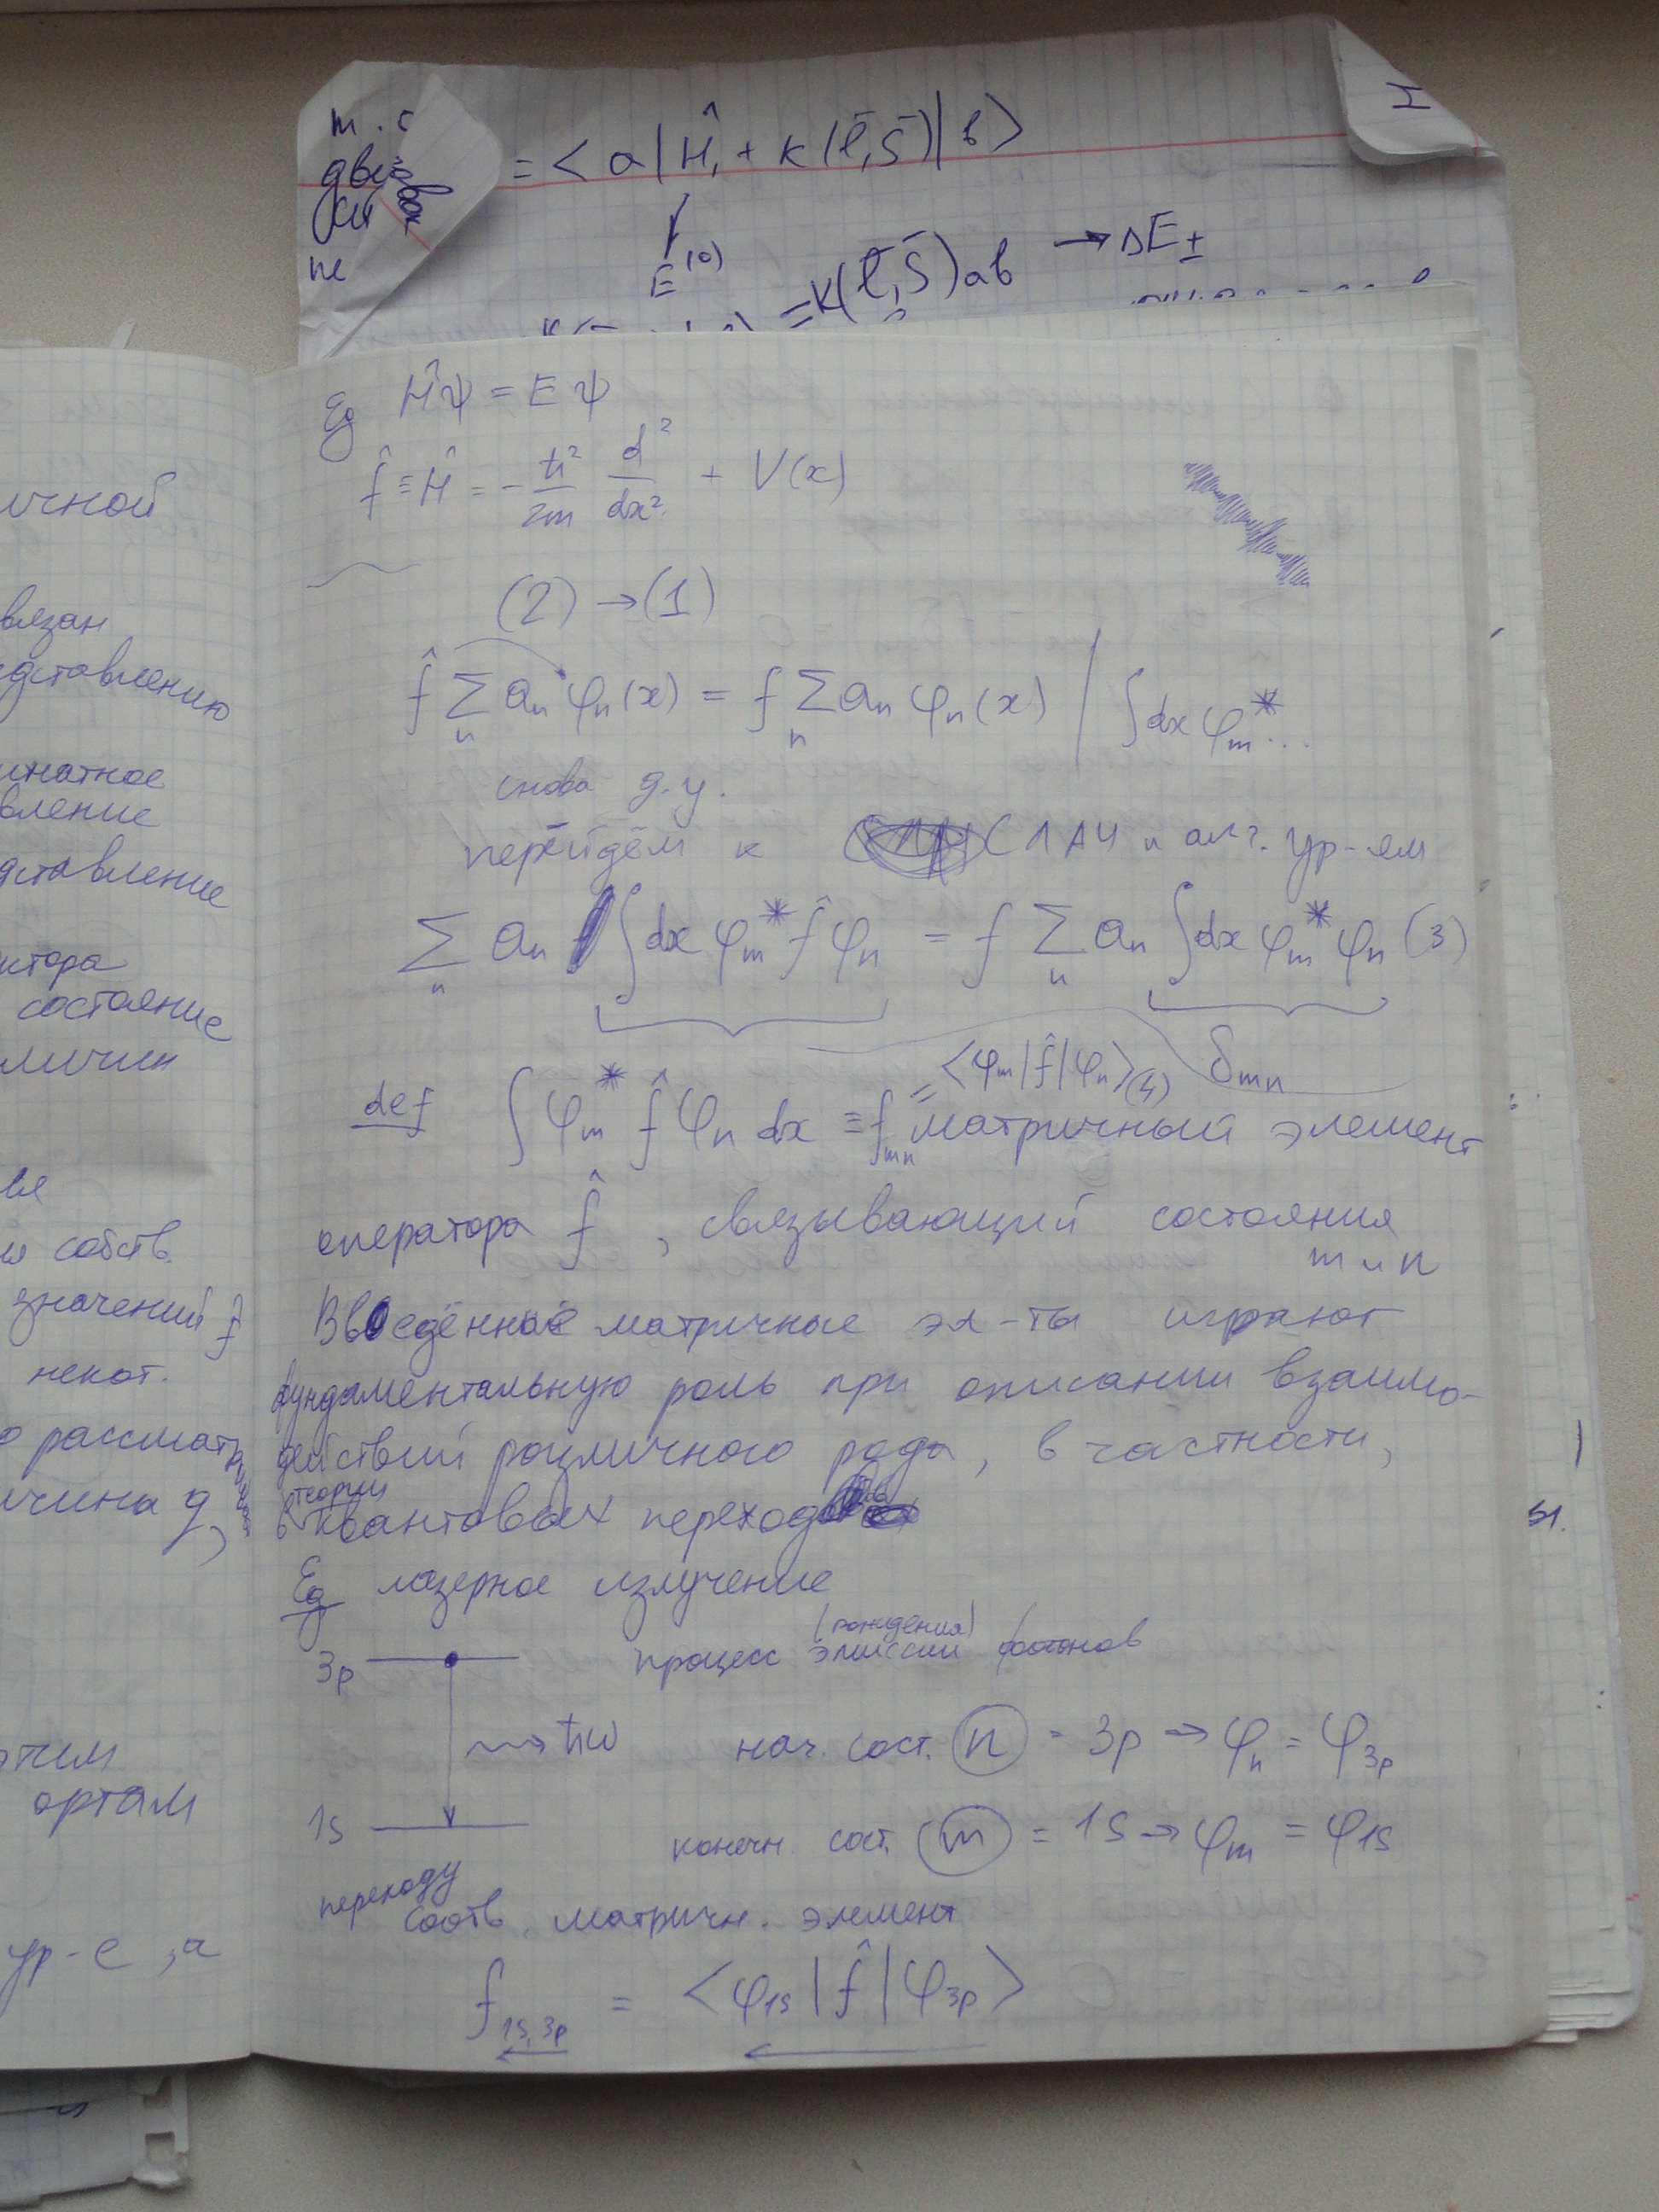 = < a | Ĥ₁ + K(l̄,S̄) | b >
E⁽⁰⁾
= K(l̄,S̄)ab → ΔE±
Eg Ĥψ = Eψ
f̂ ≡ Ĥ = - ħ²/2m d²/dx² + V(x)
(2) → (1)
f̂ Σₙ aₙ φₙ(x) = f Σₙ aₙ φₙ(x) | ∫dx φₘ* ...
снова д.у.
перейдём к СЛАУ и алг. ур-ям
Σₙ aₙ ∫dx φₘ* f̂ φₙ = f Σₙ aₙ ∫dx φₘ* φₙ (3)
= <φₘ|f̂|φₙ> (4) δₘₙ
def ∫ φₘ* f̂ φₙ dx ≡ fₘₙ матричный элемент
оператора f̂, связывающий состояния
m и n
Введённые матричные эл-ты играют
фундаментальную роль при описании взаимо-
действий различного рода, в частности,
в теории квантовых переходов
Eg лазерное излучение
3p процесс эмиссии (рождения) фотонов
ħω нач. сост. n = 3p → φₙ = φ₃ₚ
1s конечн. сост. m = 1S → φₘ = φ₁ₛ
переходу
соотв. матричн. элемент
f₁ₛ,₃ₚ = <φ₁ₛ|f̂|φ₃ₚ>
ичной
вязан
едставлению
инатное
вление
дставление
ктора
состояние
личин
собств.
значений f̂
некот.
о рассматр
ичина
этим
ортам
ур-е, а